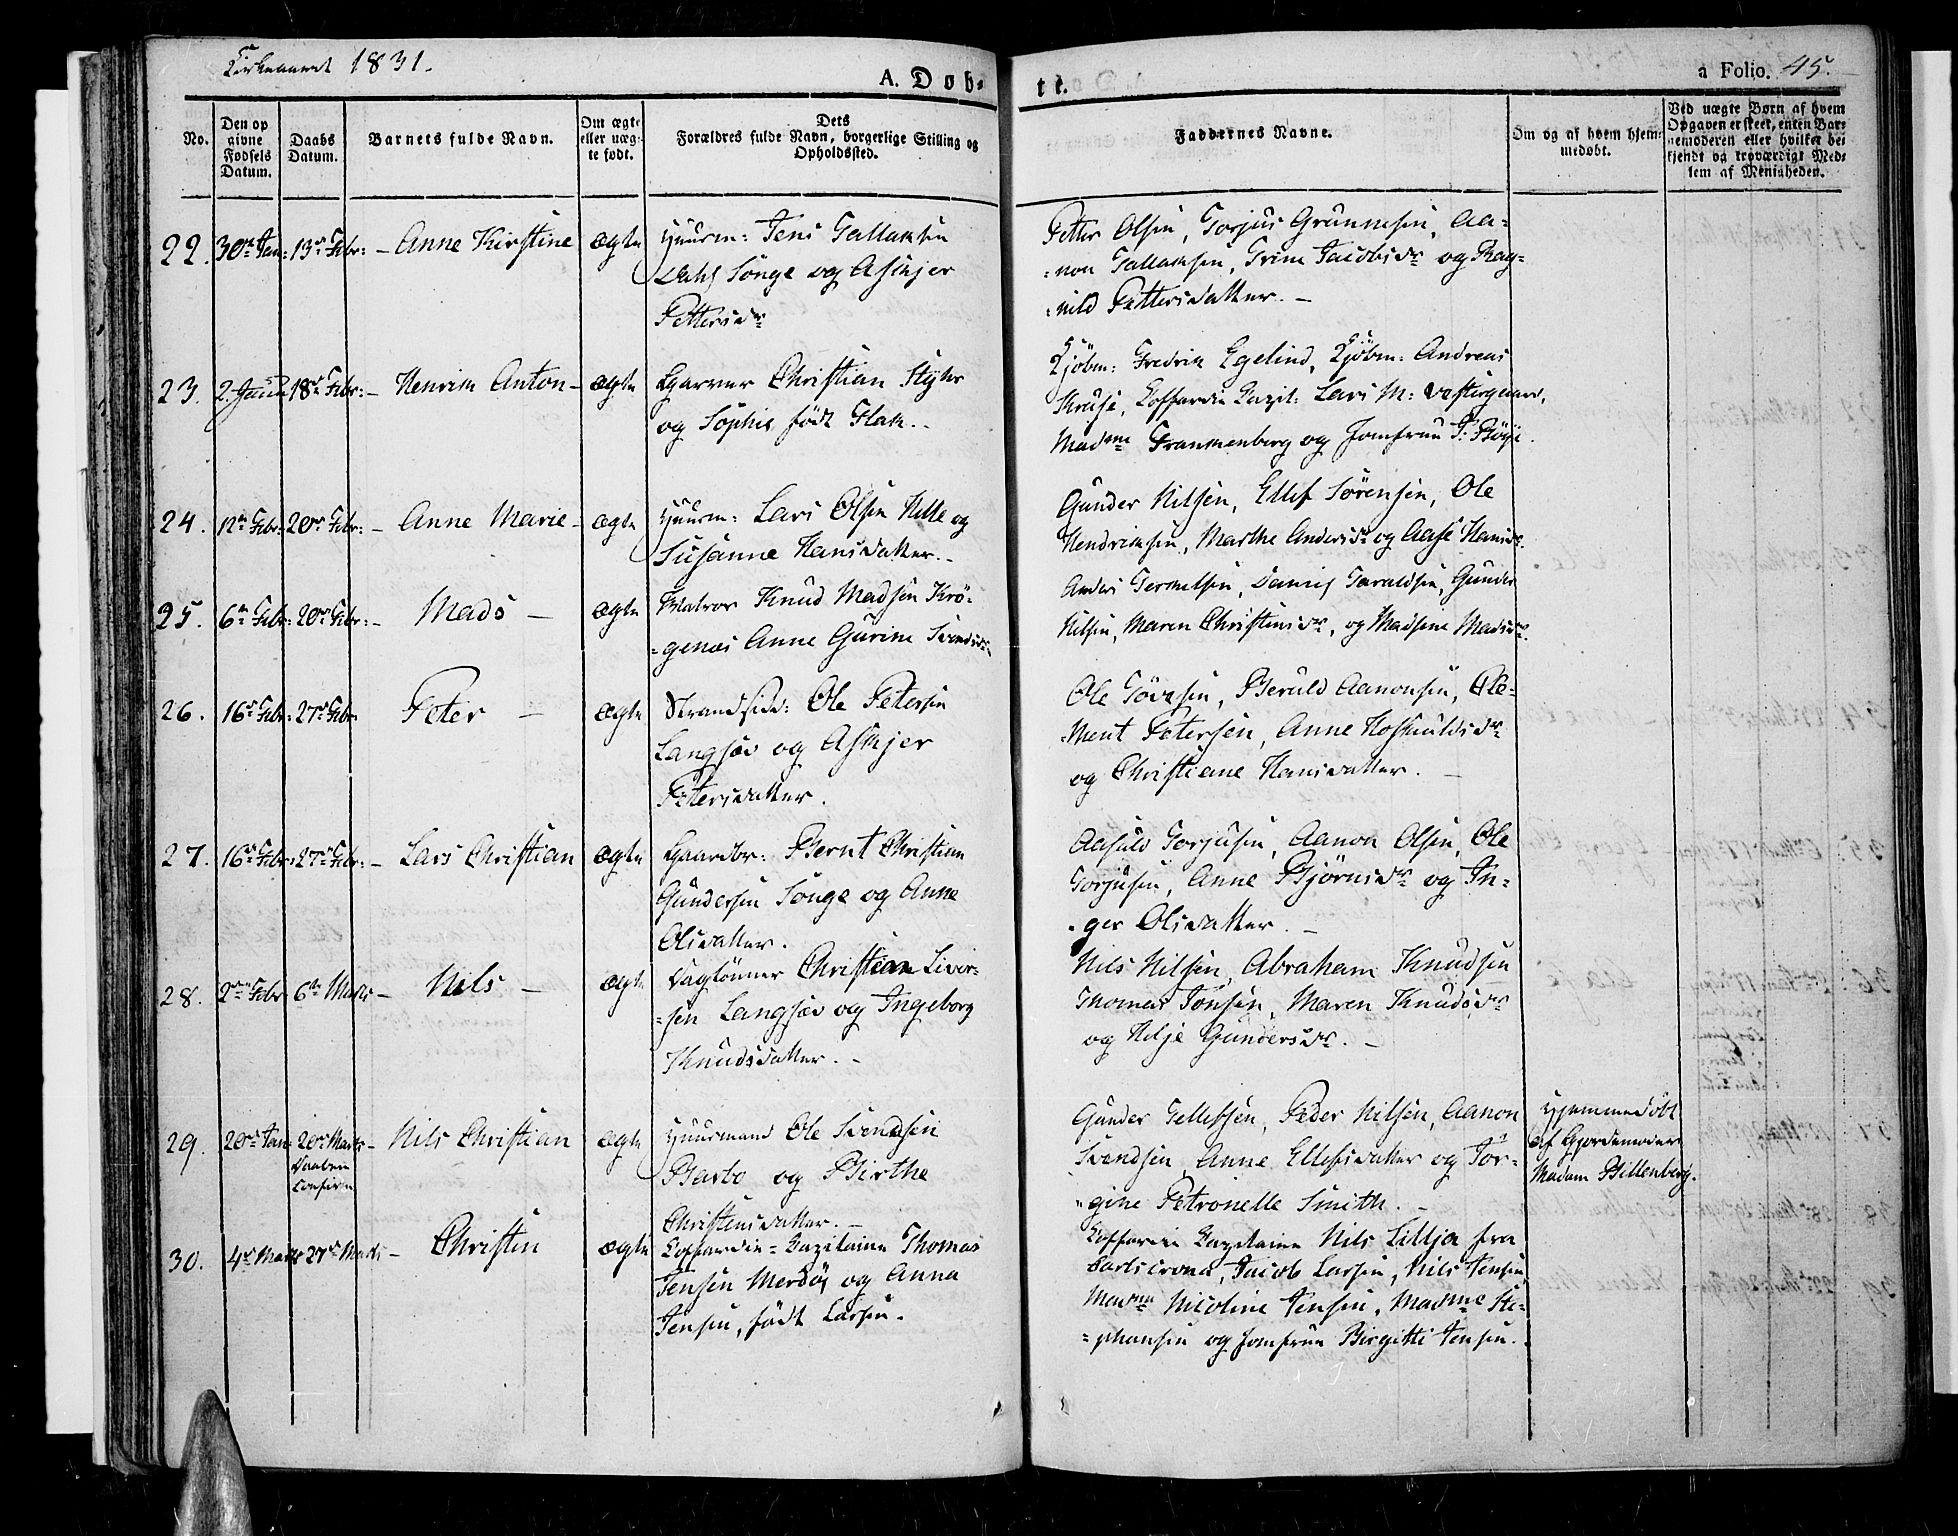 Kirkeaaret 1831.
A. Døb-
te.
a Folio. 45.
No.
Den op
givne
Fødsels
Datum.
Daabs
Datum.
Barnets fulde Navn.
Om ægte
eller uæg-
te født.
Dets
Forældres fulde Navn, borgerlige Stilling og
Opholdssted.
Faddernes Navne.
Om og af hvem hjem-
medøbt.
Ved uægte Børn af hvem
Opgaven er skeet, enten Bar-
nemoderen eller hvilket be-
kjendt og troværdigt Med-
lem af Menigheden.
22. 30te Jan: 13de Febr: - Anne Kirstine ægte
Huusm: Jens Tallaksen
Dahl Songe og Askjer
Pettersdr
Petter Olsen, Torjus Grunnesen, Aa-
=non Tallaksen, Trine Jacobsdr og Rag-
=nild Pettersdatter. -
23. 2. Janu 18de Febr: - Henrik Anton - ægte
Garver Christian Styhr
og Sophie født Flak. -
Kjøbm: Fredrik Egelind, Kjøbm: Andreas
Kruse, Coffardie Capit: Lars M: Vestergaard,
Madme Frankenberg og Jomfrue P: Bøye.
24. 12te Febr: 20de Febr: - Anne Marie - ægte
Huusm: Lars Olsen Hille og
Susanne Hansdatter. -
Gunder Nilsen, Ellef Sørensen, Ole
Hendriksen, Marthe Andersdr og Aase Hansdr.
25. 6te Febr: 20de Febr: - Mads - ægte
Matros Knud Madsen Krø-
=genes Anne Gurine Svendsdr
Anders Terkelsen, Daniel Taraldsen, Gunder
Nilsen, Maren Christensdr, og Madsene Madsdr.
26. 16de Febr: 27de Febr Peter - ægte
Strandsid: Ole Petersen
Langsæe og Askjer
Petersdatter.
Ole Tovesen, Beruld Aanonsen, Cle-
=ment Petersen, Anne Hoskuldsdr
og Christiane Hansdatter. -
27. 16de Febr: 27de Febr: - Lars Christian ægte
Gaardbr: Bernt Christian
Gundersen Songe og Anne
Olsdatter.
Aasuld Torjusen, Aanon Olsen, Ole
Torjusen, Anne Bjørnsdr og In-
=ger Olsdatter. -
28. 2den Febr: 6te Marts - Nils - ægte
Daglønner Christian Siver-
=sen Langsæe og Ingeborg
Knudsdatter. -
Nils Nilsen, Abraham Knudsen
Thomas Tonsen, Maren Knudsdr
og Helje Gundersdr. -
29. 20de Jan: 20de Marts - Nils Christian ægte
Daaben
Confirm
Huusmand Ole Svendsen
Barbo og Birthe
Christensdatter. -
Gunder Tellefsen, Peder Nilsen, Aanon
Svendsen, Anne Ellefsdatter og Tor-
=gine Petronelle Smith. -
Hjemmedøbt
af Gjordemoder
Madam Billenberg.
30. 4de Marts 27de Marts - Christen ægte
Coffardie=Capitaine Thomas
Jensen Merdøe og Anna
Jensen, født Larsen.
Coffardie Capitaine Nils Lillja fra
Carlscrona, Jacob Larsen, Nils Jensen,
Madme Nicoline Jensen, Madme Ste-
=phansen og Jomfrue Birgitte Jensen.